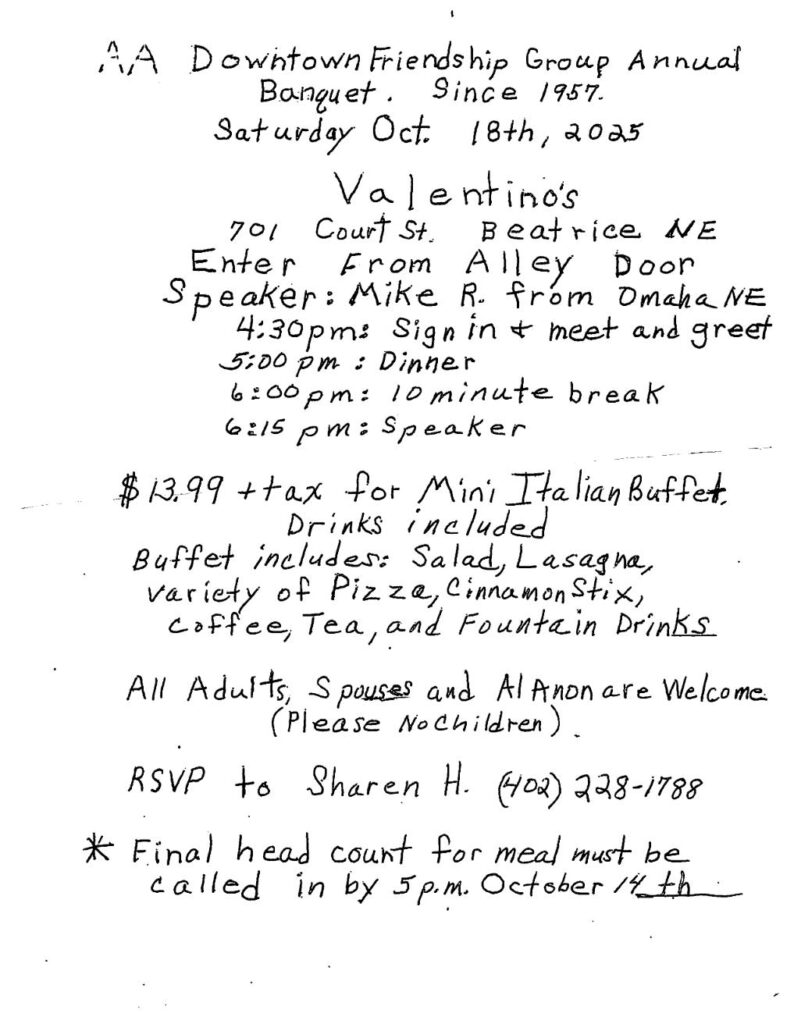 AA Downtown Friendship Group Annual
Banquet. Since 1957.
Saturday Oct. 18th, 2025
Valentino's
701 Court St. Beatrice NE
Enter From Alley Door
Speaker: Mike R. from Omaha NE
4:30pm: Sign in + meet and greet
5:00 pm : Dinner
6:00pm: 10 minute break
6:15 pm: Speaker
$13.99 + tax for Mini Italian Buffet.
Drinks included
Buffet includes: Salad, Lasagna,
variety of Pizza, Cinnamon Stix,
Coffee, Tea, and Fountain Drinks
All Adults, Spouses and Al Anon are Welcome
(Please No Children).
RSVP to Sharen H. (402) 228-1788
* Final head count for meal must be
called in by 5 p.m. October 14th